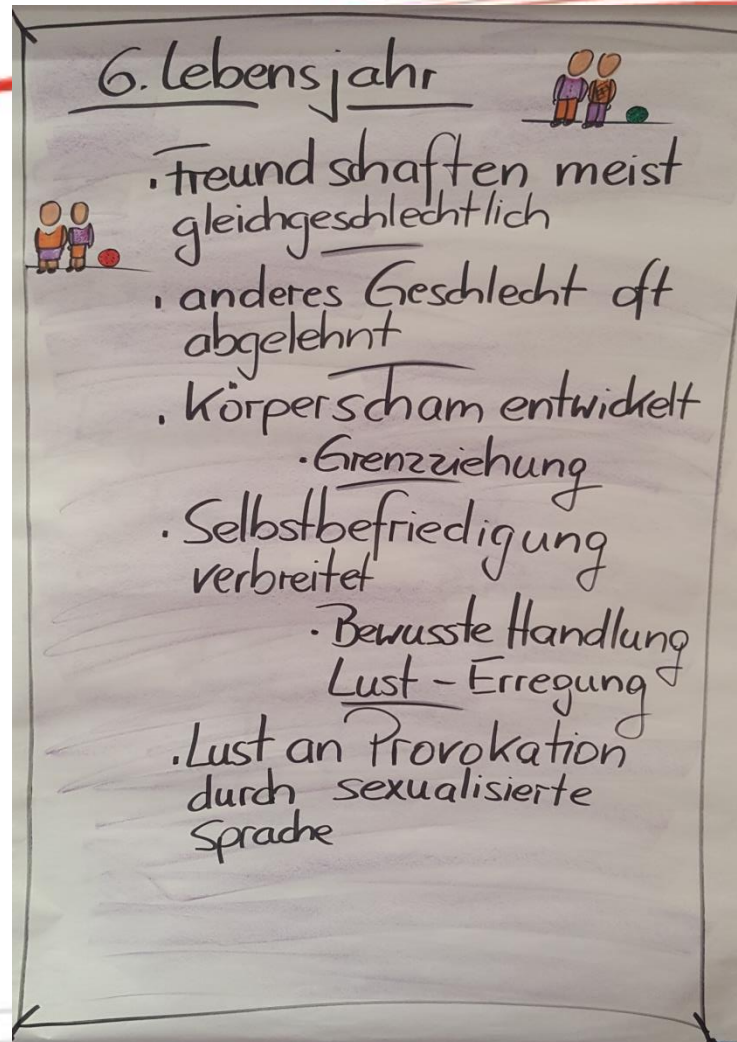 6. Lebensjahr
. Freundschaften meist
gleichgeschlechtlich
. anderes Geschlecht oft
abgelehnt
. Körperscham entwickelt
. Grenzziehung
. Selbstbefriedigung
verbreitet
. Bewusste Handlung
Lust - Erregung
. Lust an Provokation
durch sexualisierte
Sprache